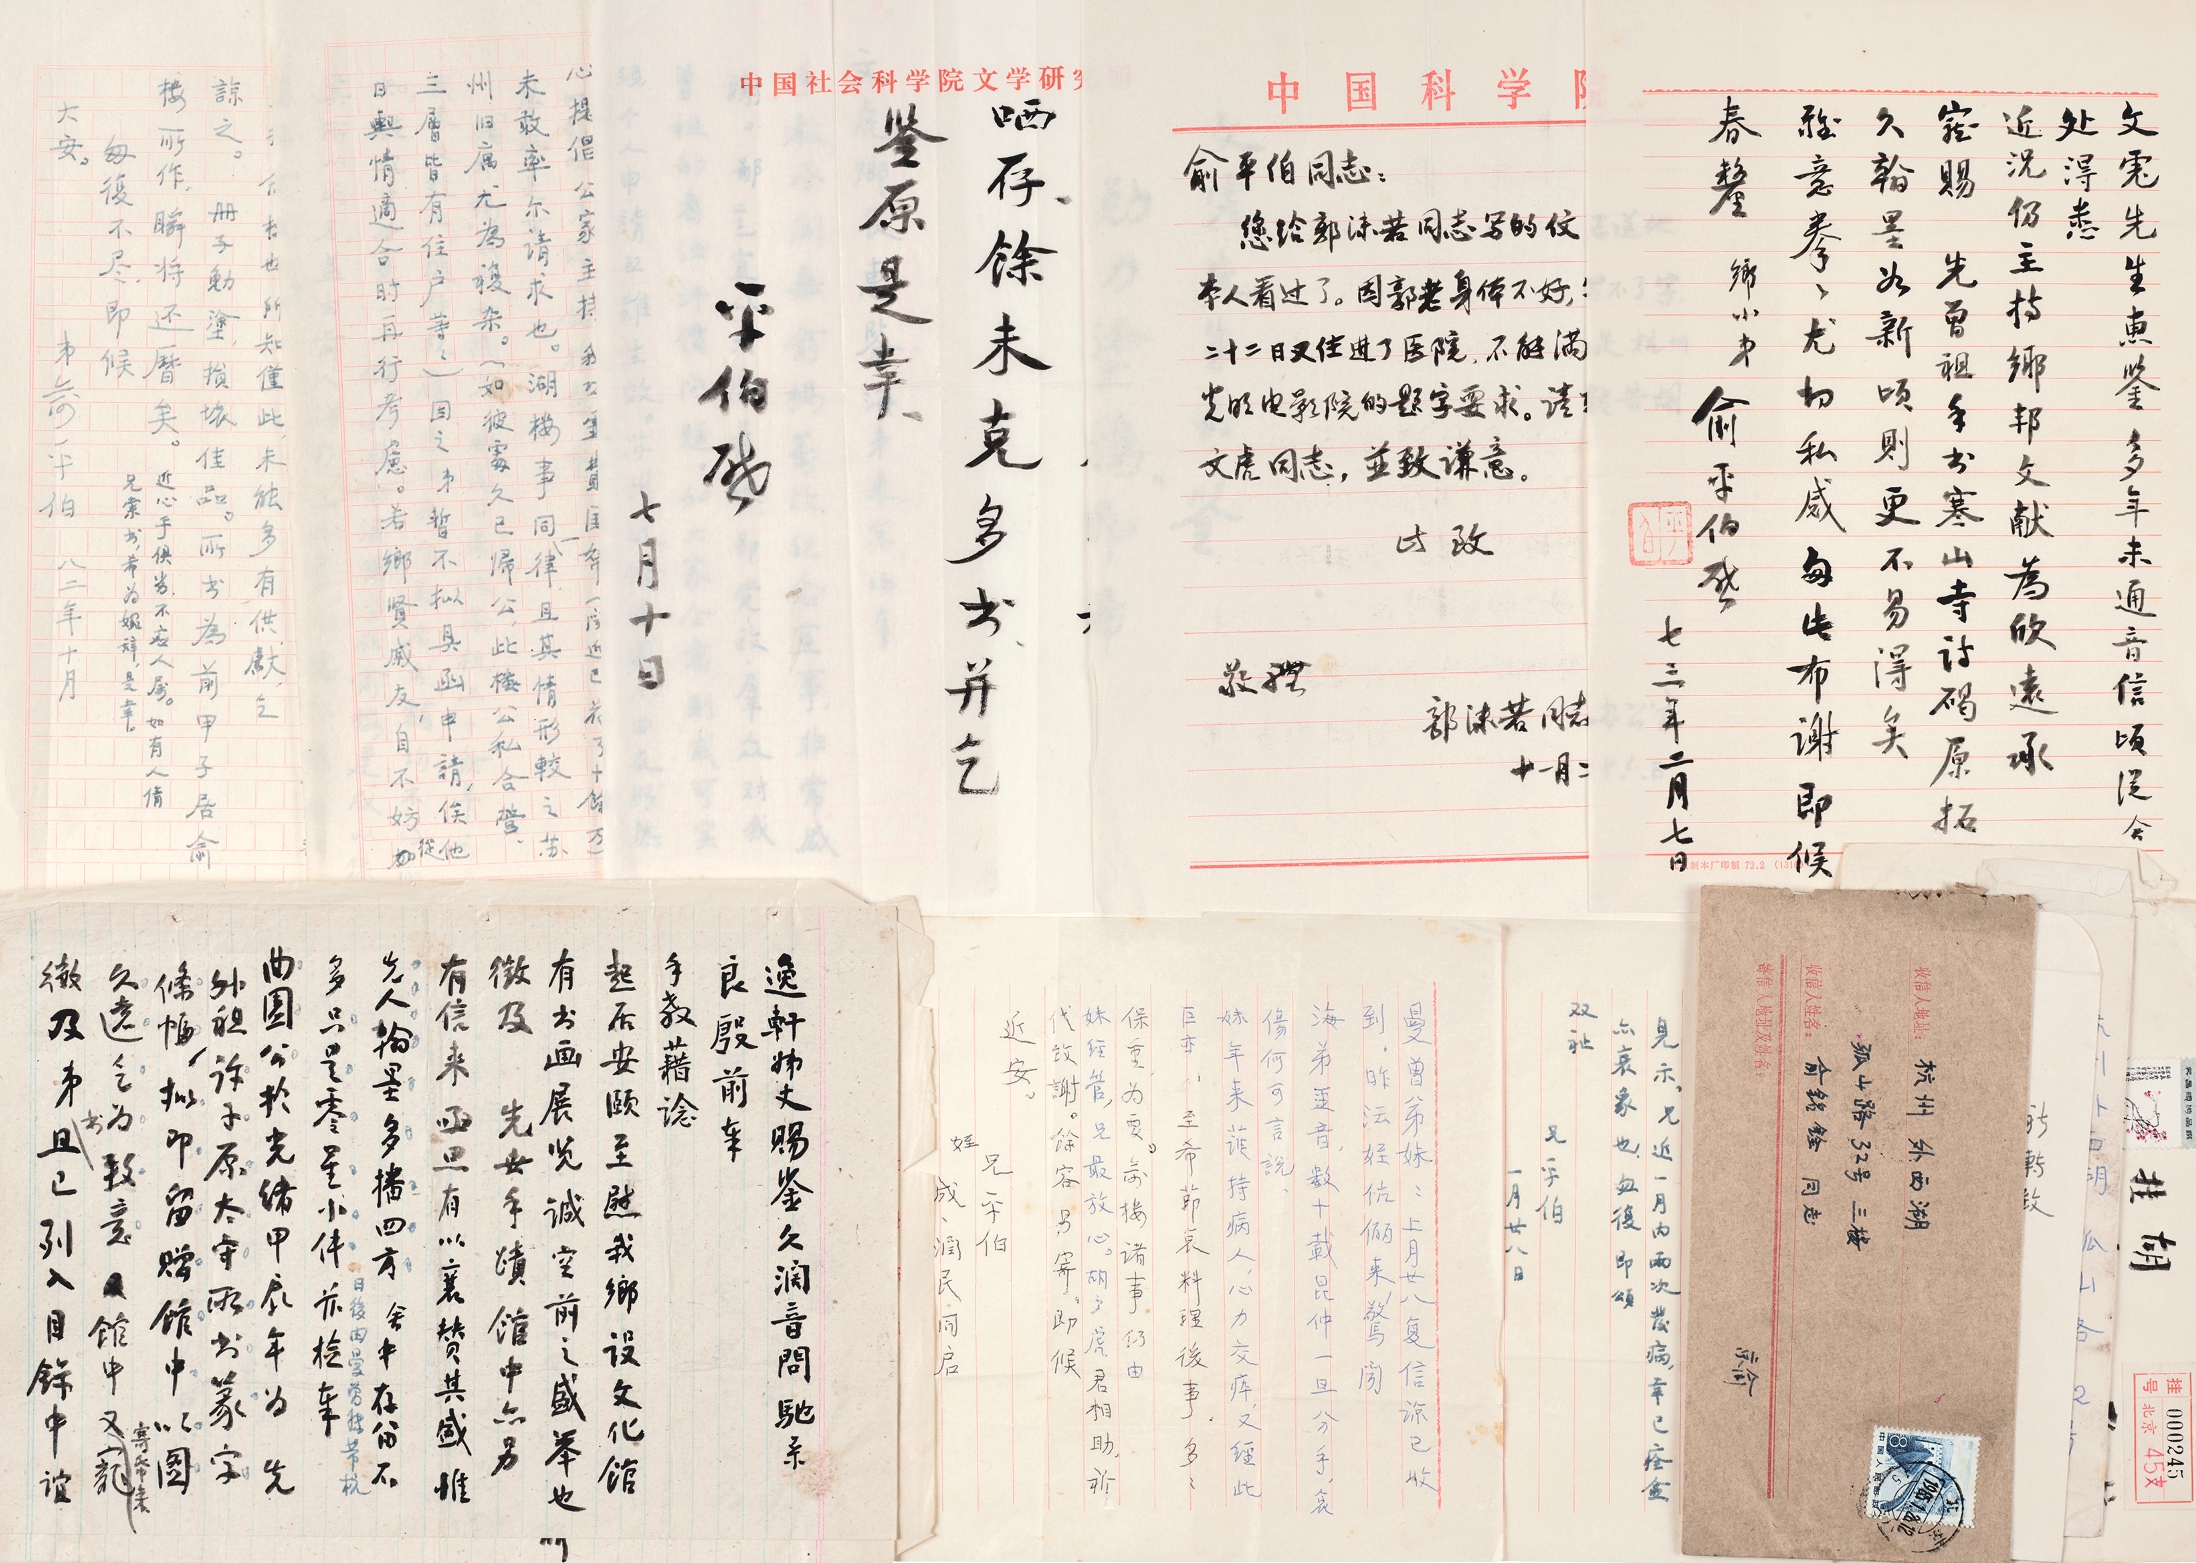 文虎先生惠鉴多年未通音信顷从舍
处得悉
近况仍主持乡邦文献为欣远承
宠赐 先曾祖手书寒山寺诗碣原拓
久翰墨如新顷则更不易得矣
雅意拳拳尤切私感匆此布谢即候
春釐 乡小弟 俞平伯启
七三年二月七日
中国科学院
俞平伯同志:
您给郭沫若同志写的仗
本人看过了。因郭老身体不好,
二十二日又住进了医院,不能满
光明电影院的题字要求。请
文虎同志,並致谦意。
此致
敬礼
郭沫若同志
十一月二
中国社会科学院文学研究
哂存、馀未克多书、并乞
鉴原是幸、
平伯启
七月十日
心提倡公家主持
未敢率尔请求也。湖楼事同一律,且其情形較之苏
州旧寓尤為複杂。(如彼處久已歸公,此楼公私合營,
三層皆有住户等等)因之弟暫不拟具函申請,俟他
日輿情適合时再行考慮。若鄉賢戚友,自不妨
所知僅此,未能多有供獻,乞
諒之。册子動塗,損壞佳品。所书為前甲子居俞
楼所作,瞬将还曆矣。
近心手俱劣,不应人属。如有人倩
兄索书,希为婉辞,是幸
匆復不尽,即候
大安。
弟俞平伯 八二年十月
逸軒姊丈赐鉴久阔音問馳系
良殷前奉
手教藉谂
起居安颐至慰我鄉设文化馆
有书画展览诚空前之盛举也
徵及 先世手蹟馆中亦另
有信来函思有以襄赞其盛惟
先人翰墨多播四方舍中存留不
多只是零星小件前检奉
曲園公於光绪甲辰年为 先
外祖许子原太守所书篆字
條幅拟即留赠馆中以圖
久遠乞为致意 馆中又寵
徵及弟书且已列入目錄中誼
日後由曼曾妹带杭
曼曾弟妹:上月廿八复信諒已收
到,昨法姪伉儷来,驚闻
海弟噩音,数十載昆仲一旦分手,哀
傷何可言説,
妹年来蒞持病人,心力交瘁,又經此
巨变,至希節哀料理後事,多多
保重为要。俞楼諸事仍由
妹經管,兄最放心。胡文虎君相助,祈
代致謝。餘容另寄。即候
近安。
兄平伯
姪成、润民同启
見示,兄近一月内两次發病,幸已痊愈
亦衰象也,匆復 即頌
双祉
兄平伯
一月廿八日
收信人地址:
杭州外西湖
孤山路32号三楼
收信人姓名:
俞銘銓同志
寄信人地址及姓名
京俞
中国人民邮政
8
挂号
000245
北京45支